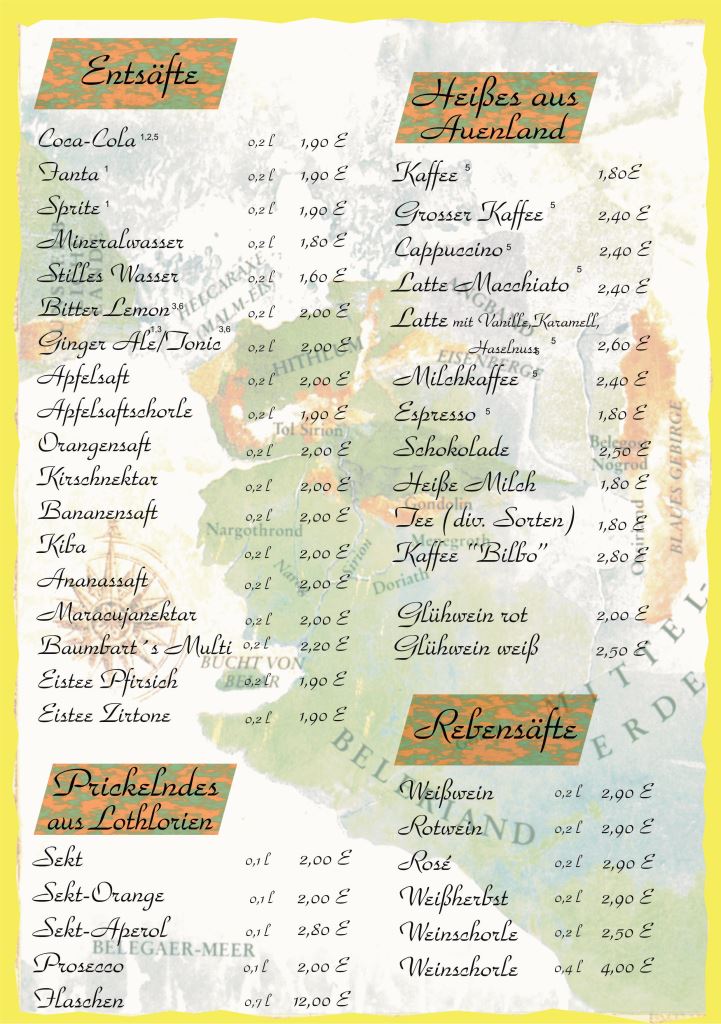 Entsäfte
Coca-Cola 1,2,5 0,2 l 1,90 E
Fanta 1 0,2 l 1,90 E
Sprite 1 0,2 l 1,90 E
Mineralwasser 0,2 l 1,80 E
Stilles Wasser 0,2 l 1,60 E
Bitter Lemon 3,6 0,2 l 2,00 E
Ginger Ale 1,3 /Tonic 3,6 0,2 l 2,00 E
Apfelsaft 0,2 l 2,00 E
Apfelsaftschorle 0,2 l 1,90 E
Orangensaft 0,2 l 2,00 E
Kirschnektar 0,2 l 2,00 E
Bananensaft 0,2 l 2,00 E
Kiba 0,2 l 2,00 E
Ananassaft 0,2 l 2,00 E
Maracujanektar 0,2 l 2,00 E
Baumbart´s Multi 0,2 l 2,20 E
Eistee Pfirsich 0,2 l 1,90 E
Eistee Zirtone 0,2 l 1,90 E
Prickelndes
aus Lothlorien
Sekt 0,1 l 2,00 E
Sekt-Orange 0,1 l 2,00 E
Sekt-Aperol 0,1 l 2,80 E
Prosecco 0,1 l 2,00 E
Flaschen 0,7 l 12,00 E
Heißes aus
Auenland
Kaffee 5 1,80 E
Grosser Kaffee 5 2,40 E
Cappuccino 5 2,40 E
Latte Macchiato 5 2,40 E
Latte mit Vanille, Karamell,
Haselnuss 5 5 2,60 E
Milchkaffee 5 2,40 E
Espresso 5 1,80 E
Schokolade 2,50 E
Heiße Milch 1,80 E
Tee (div. Sorten) 1,80 E
Kaffee "Bilbo" 2,80 E
Glühwein rot 2,00 E
Glühwein weiß 2,50 E
Rebensäfte
Weißwein 0,2 l 2,90 E
Rotwein 0,2 l 2,90 E
Rosé 0,2 l 2,90 E
Weißherbst 0,2 l 2,90 E
Weinschorle 0,2 l 2,50 E
Weinschorle 0,4 l 4,00 E
HITHLUM
Tol Sirion
EISENBERGE
Belegost
Nogrod
BLAUES GEBIRGE
Gondolin
Menegroth
Nargothrond
Sirion
Doriath
BUCHT VON
BALAR
BELERIAND
MITTEL-
ERDE
BELEGAER-MEER